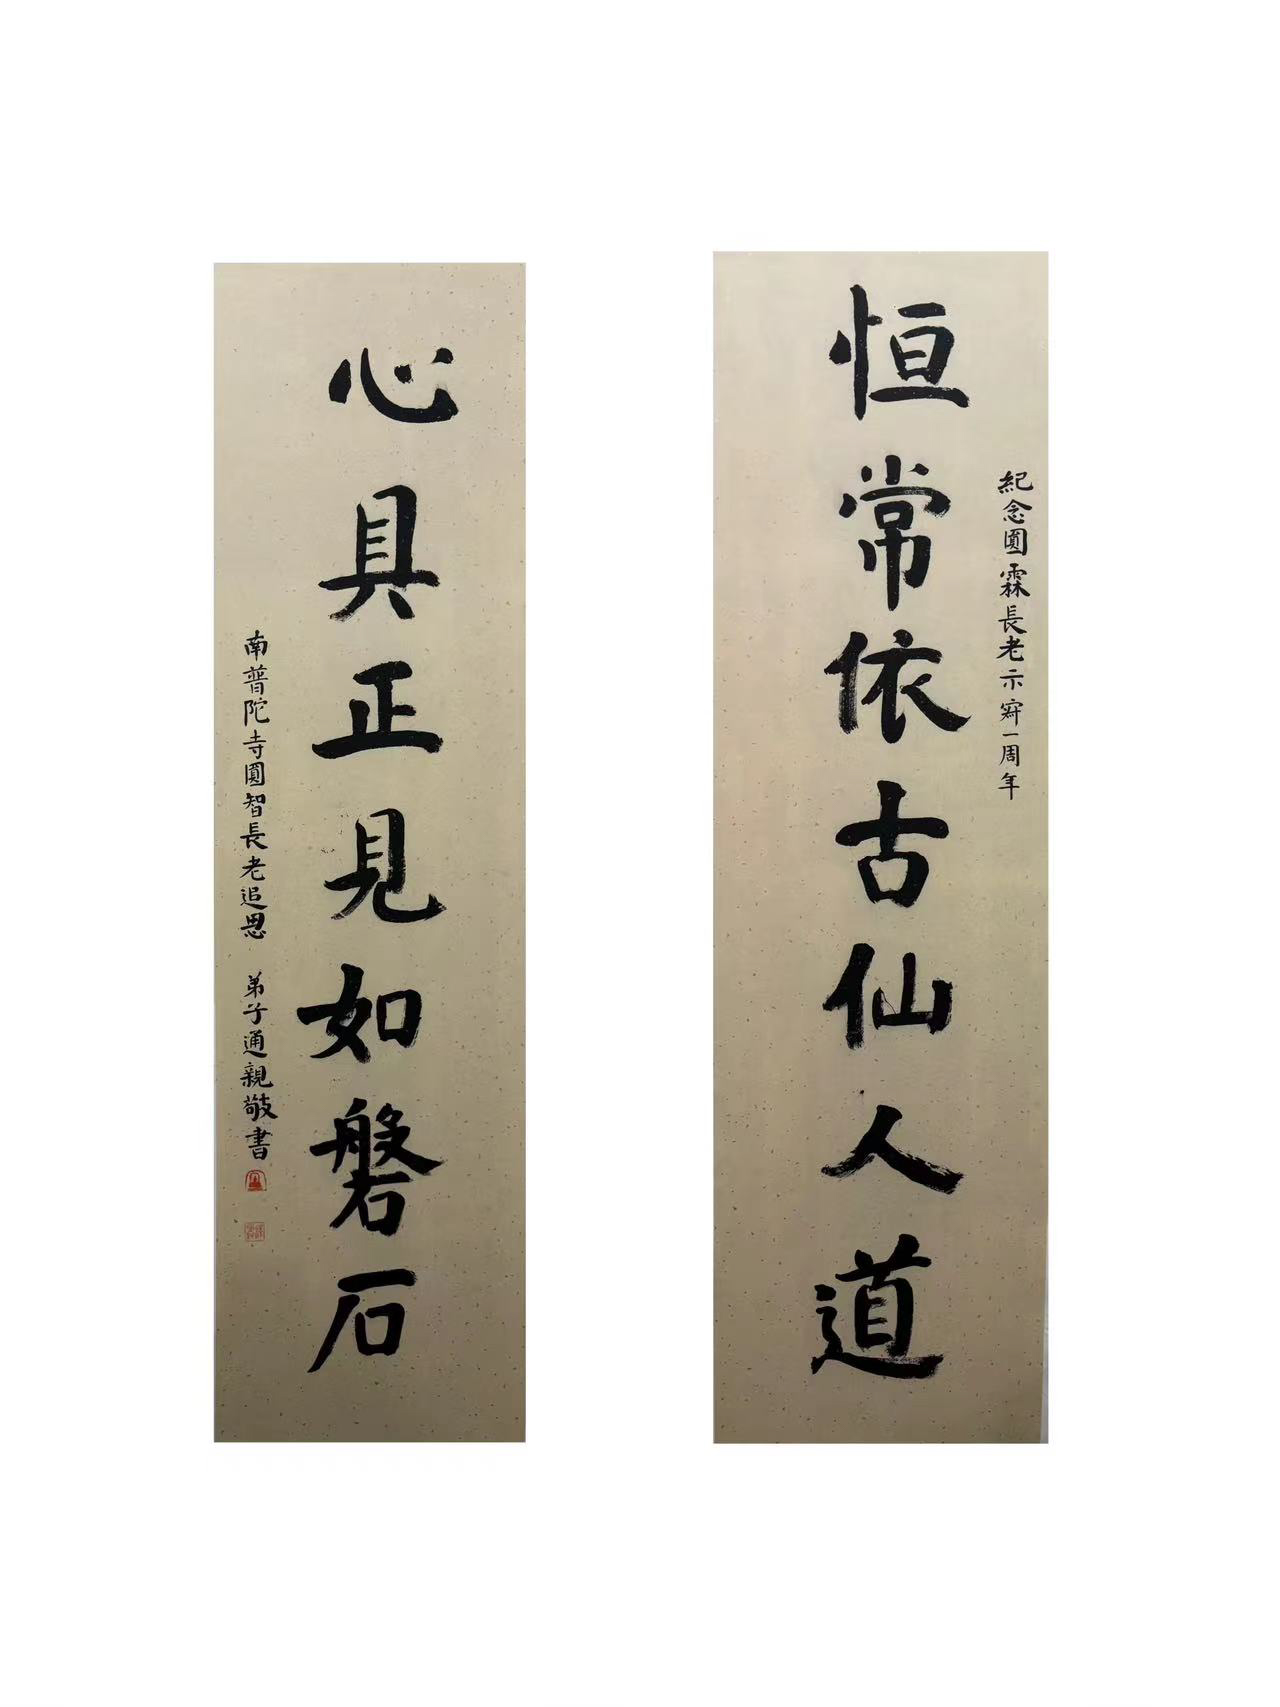 紀念圓霖長老示寂一周年
恒常依古仙人道
心具正見如磐石
南普陀寺圓智長老追思 弟子通親敬書